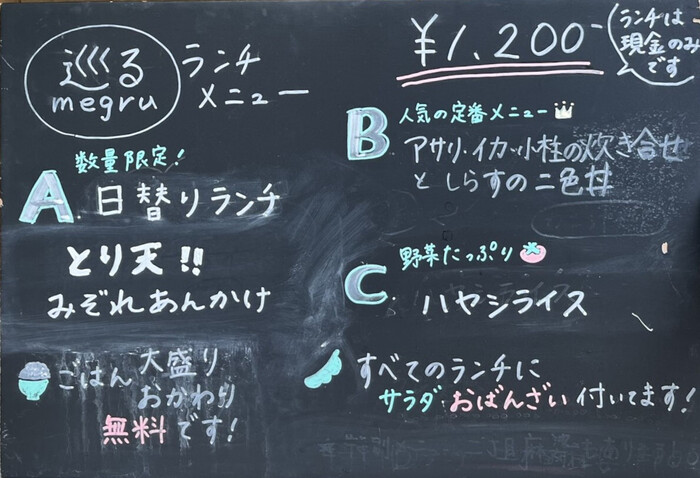 巡る
megru
ランチ
メニュー
¥1,200-
ランチは
現金のみ
です
数量限定!
A. 日替りランチ
とり天!!
みぞれあんかけ
ごはん 大盛り
おかわり
無料です!
B. 人気の定番メニュー
アサリ・イカ・小柱の炊き合せ
と しらすの二色丼
野菜たっぷり
C. ハヤシライス
すべてのランチに
サラダ・おばんざい 付いてます!